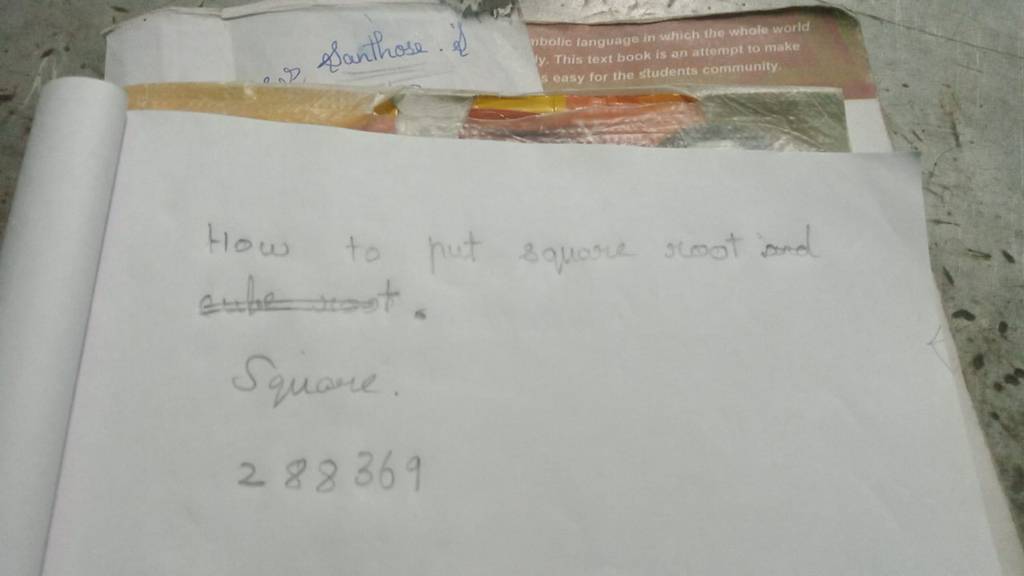 Santhose. S
mbolic language in which the whole world
ly. This text book is an attempt to make
s easy for the students community.
How to put square root and
cube root.
Square.
288369